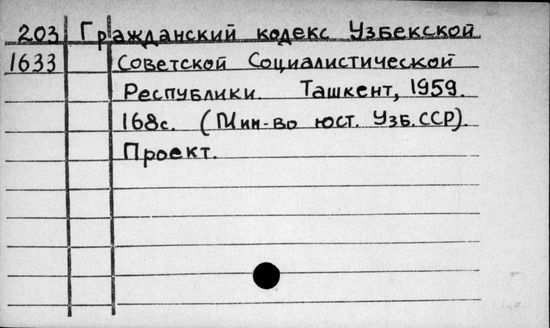 203 Гражданский кодекс Узбекской
1633 Советской Социалистической
Республики. Ташкент, 1959.
168с. (Мин-во юст. Узб.ССР).
Проект.